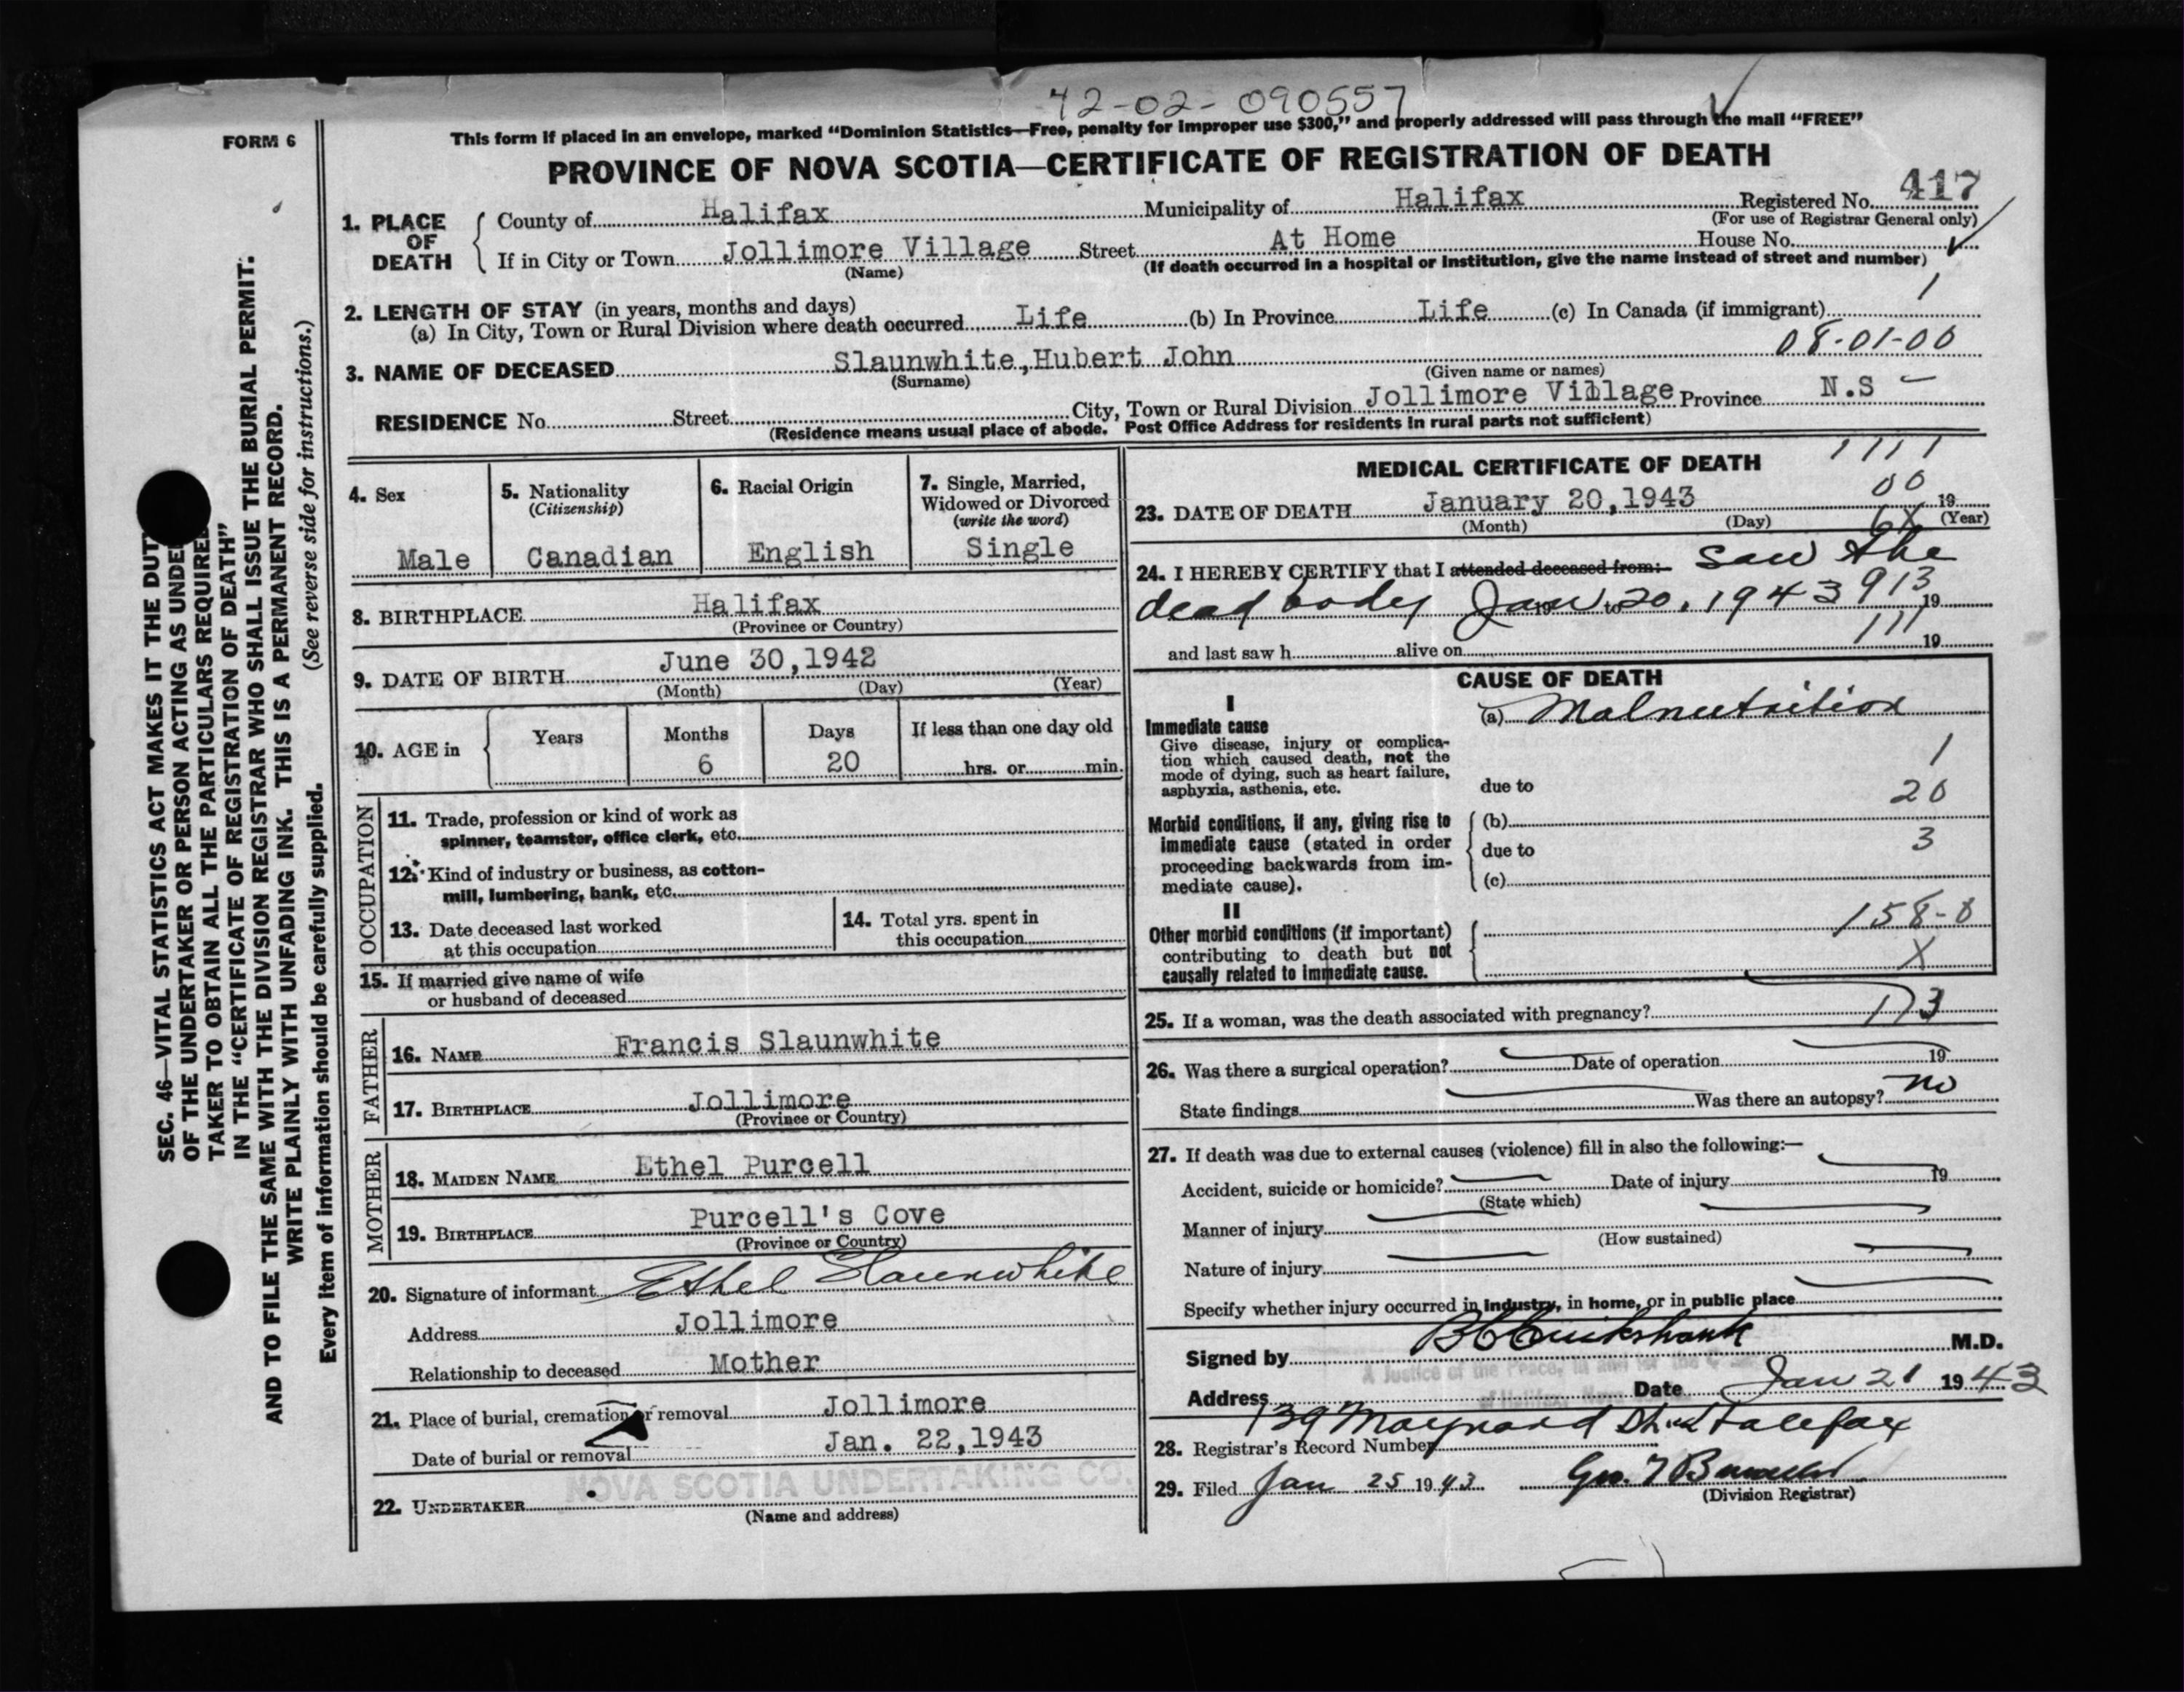 42-02-090557
FORM 6
This form if placed in an envelope, marked “Dominion Statistics—Free, penalty for improper use $300,” and properly addressed will pass through the mail “FREE”
PROVINCE OF NOVA SCOTIA—CERTIFICATE OF REGISTRATION OF DEATH
1. PLACE OF DEATH
County of Halifax Municipality of Halifax Registered No. 417
(For use of Registrar General only)
If in City or Town Jollimore Village Street At Home House No.
(Name) (If death occurred in a hospital or institution, give the name instead of street and number)
2. LENGTH OF STAY (in years, months and days) 1
(a) In City, Town or Rural Division where death occurred Life (b) In Province Life (c) In Canada (if immigrant)
08-01-00
3. NAME OF DECEASED Slaunwhite, Hubert John
(Surname) (Given name or names)
RESIDENCE No. Street City, Town or Rural Division Jollimore Village Province N.S
(Residence means usual place of abode. Post Office Address for residents in rural parts not sufficient)
4. Sex Male
5. Nationality (Citizenship) Canadian
6. Racial Origin English
7. Single, Married, Widowed or Divorced (write the word) Single
8. BIRTHPLACE Halifax
(Province or Country)
9. DATE OF BIRTH June 30, 1942
(Month) (Day) (Year)
10. AGE in Years Months Days If less than one day old
6 20 hrs. or min.
OCCUPATION
11. Trade, profession or kind of work as spinner, teamster, office clerk, etc.
12. Kind of industry or business, as cotton-mill, lumbering, bank, etc.
13. Date deceased last worked at this occupation
14. Total yrs. spent in this occupation
15. If married give name of wife or husband of deceased
FATHER
16. NAME Francis Slaunwhite
17. BIRTHPLACE Jollimore
(Province or Country)
MOTHER
18. MAIDEN NAME Ethel Purcell
19. BIRTHPLACE Purcell's Cove
(Province or Country)
20. Signature of informant Ethel Slaunwhite
Address Jollimore
Relationship to deceased Mother
21. Place of burial, cremation or removal Jollimore
Date of burial or removal Jan. 22, 1943
NOVA SCOTIA UNDERTAKING CO.
22. UNDERTAKER
(Name and address)
MEDICAL CERTIFICATE OF DEATH
1111
00
23. DATE OF DEATH January 20, 1943 19
(Month) (Day) (Year)
6X
24. I HEREBY CERTIFY that I attended deceased from:- saw the
dead body Jan 20, 1943 913 19
111
and last saw h alive on 19
CAUSE OF DEATH
I
Immediate cause
Give disease, injury or complication which caused death, not the mode of dying, such as heart failure, asphyxia, asthenia, etc.
(a) Malnutrition
1
due to 20
Morbid conditions, if any, giving rise to immediate cause (stated in order proceeding backwards from immediate cause).
(b)
due to 3
(c)
II
Other morbid conditions (if important) contributing to death but not causally related to immediate cause.
158-0
X
25. If a woman, was the death associated with pregnancy? 173
26. Was there a surgical operation? Date of operation 19
State findings Was there an autopsy? no
27. If death was due to external causes (violence) fill in also the following:—
Accident, suicide or homicide? Date of injury 19
(State which)
Manner of injury
(How sustained)
Nature of injury
Specify whether injury occurred in industry, in home, or in public place
Signed by M.D.
A Justice of the Peace, in and for the
Address Date Jan 21 1943
139 Maynard St. Halifax
28. Registrar's Record Number
29. Filed Jan 25 1943
(Division Registrar)
SEC. 46—VITAL STATISTICS ACT MAKES IT THE DUTY
OF THE UNDERTAKER OR PERSON ACTING AS UNDER
TAKER TO OBTAIN ALL THE PARTICULARS REQUIRED
IN THE “CERTIFICATE OF REGISTRATION OF DEATH”
AND TO FILE THE SAME WITH THE DIVISION REGISTRAR WHO SHALL ISSUE THE BURIAL PERMIT.
WRITE PLAINLY WITH UNFADING INK. THIS IS A PERMANENT RECORD.
Every item of information should be carefully supplied. (See reverse side for instructions.)